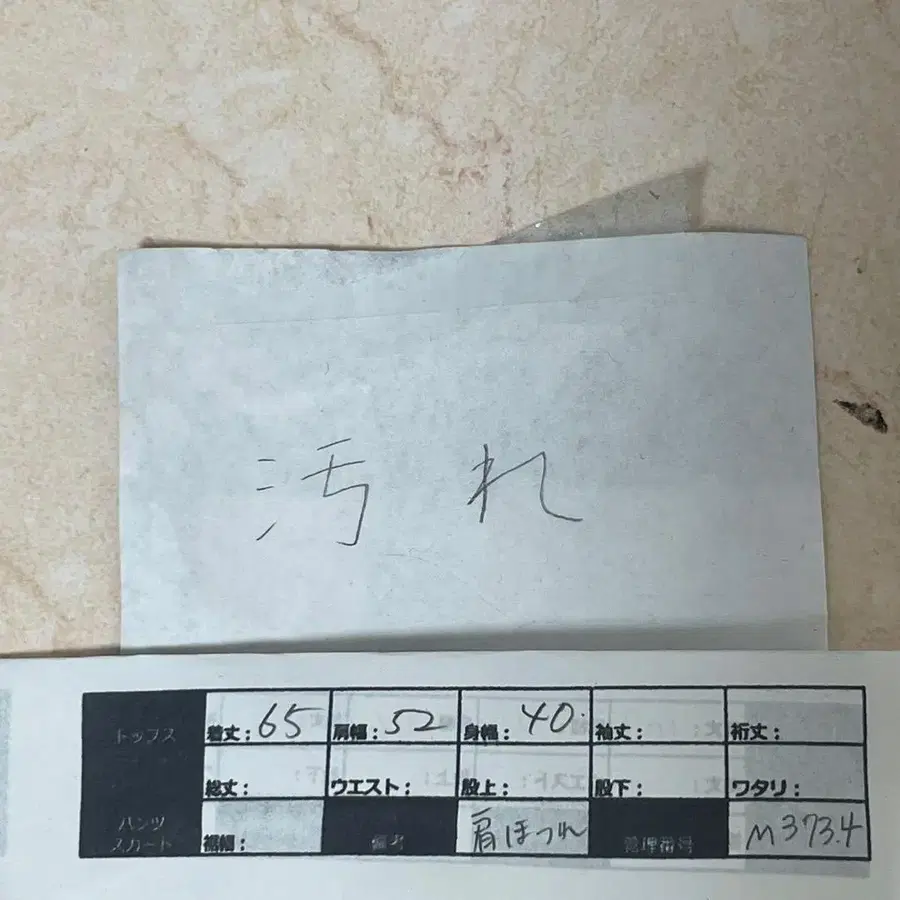 汚れ
トップス 着丈：65 肩幅：52 身幅：40 袖丈： 裄丈：
総丈： ウエスト： 股上： 股下： ワタリ：
パンツ
スカート 裾幅： 備考 肩ほつれ 管理番号 M373.4